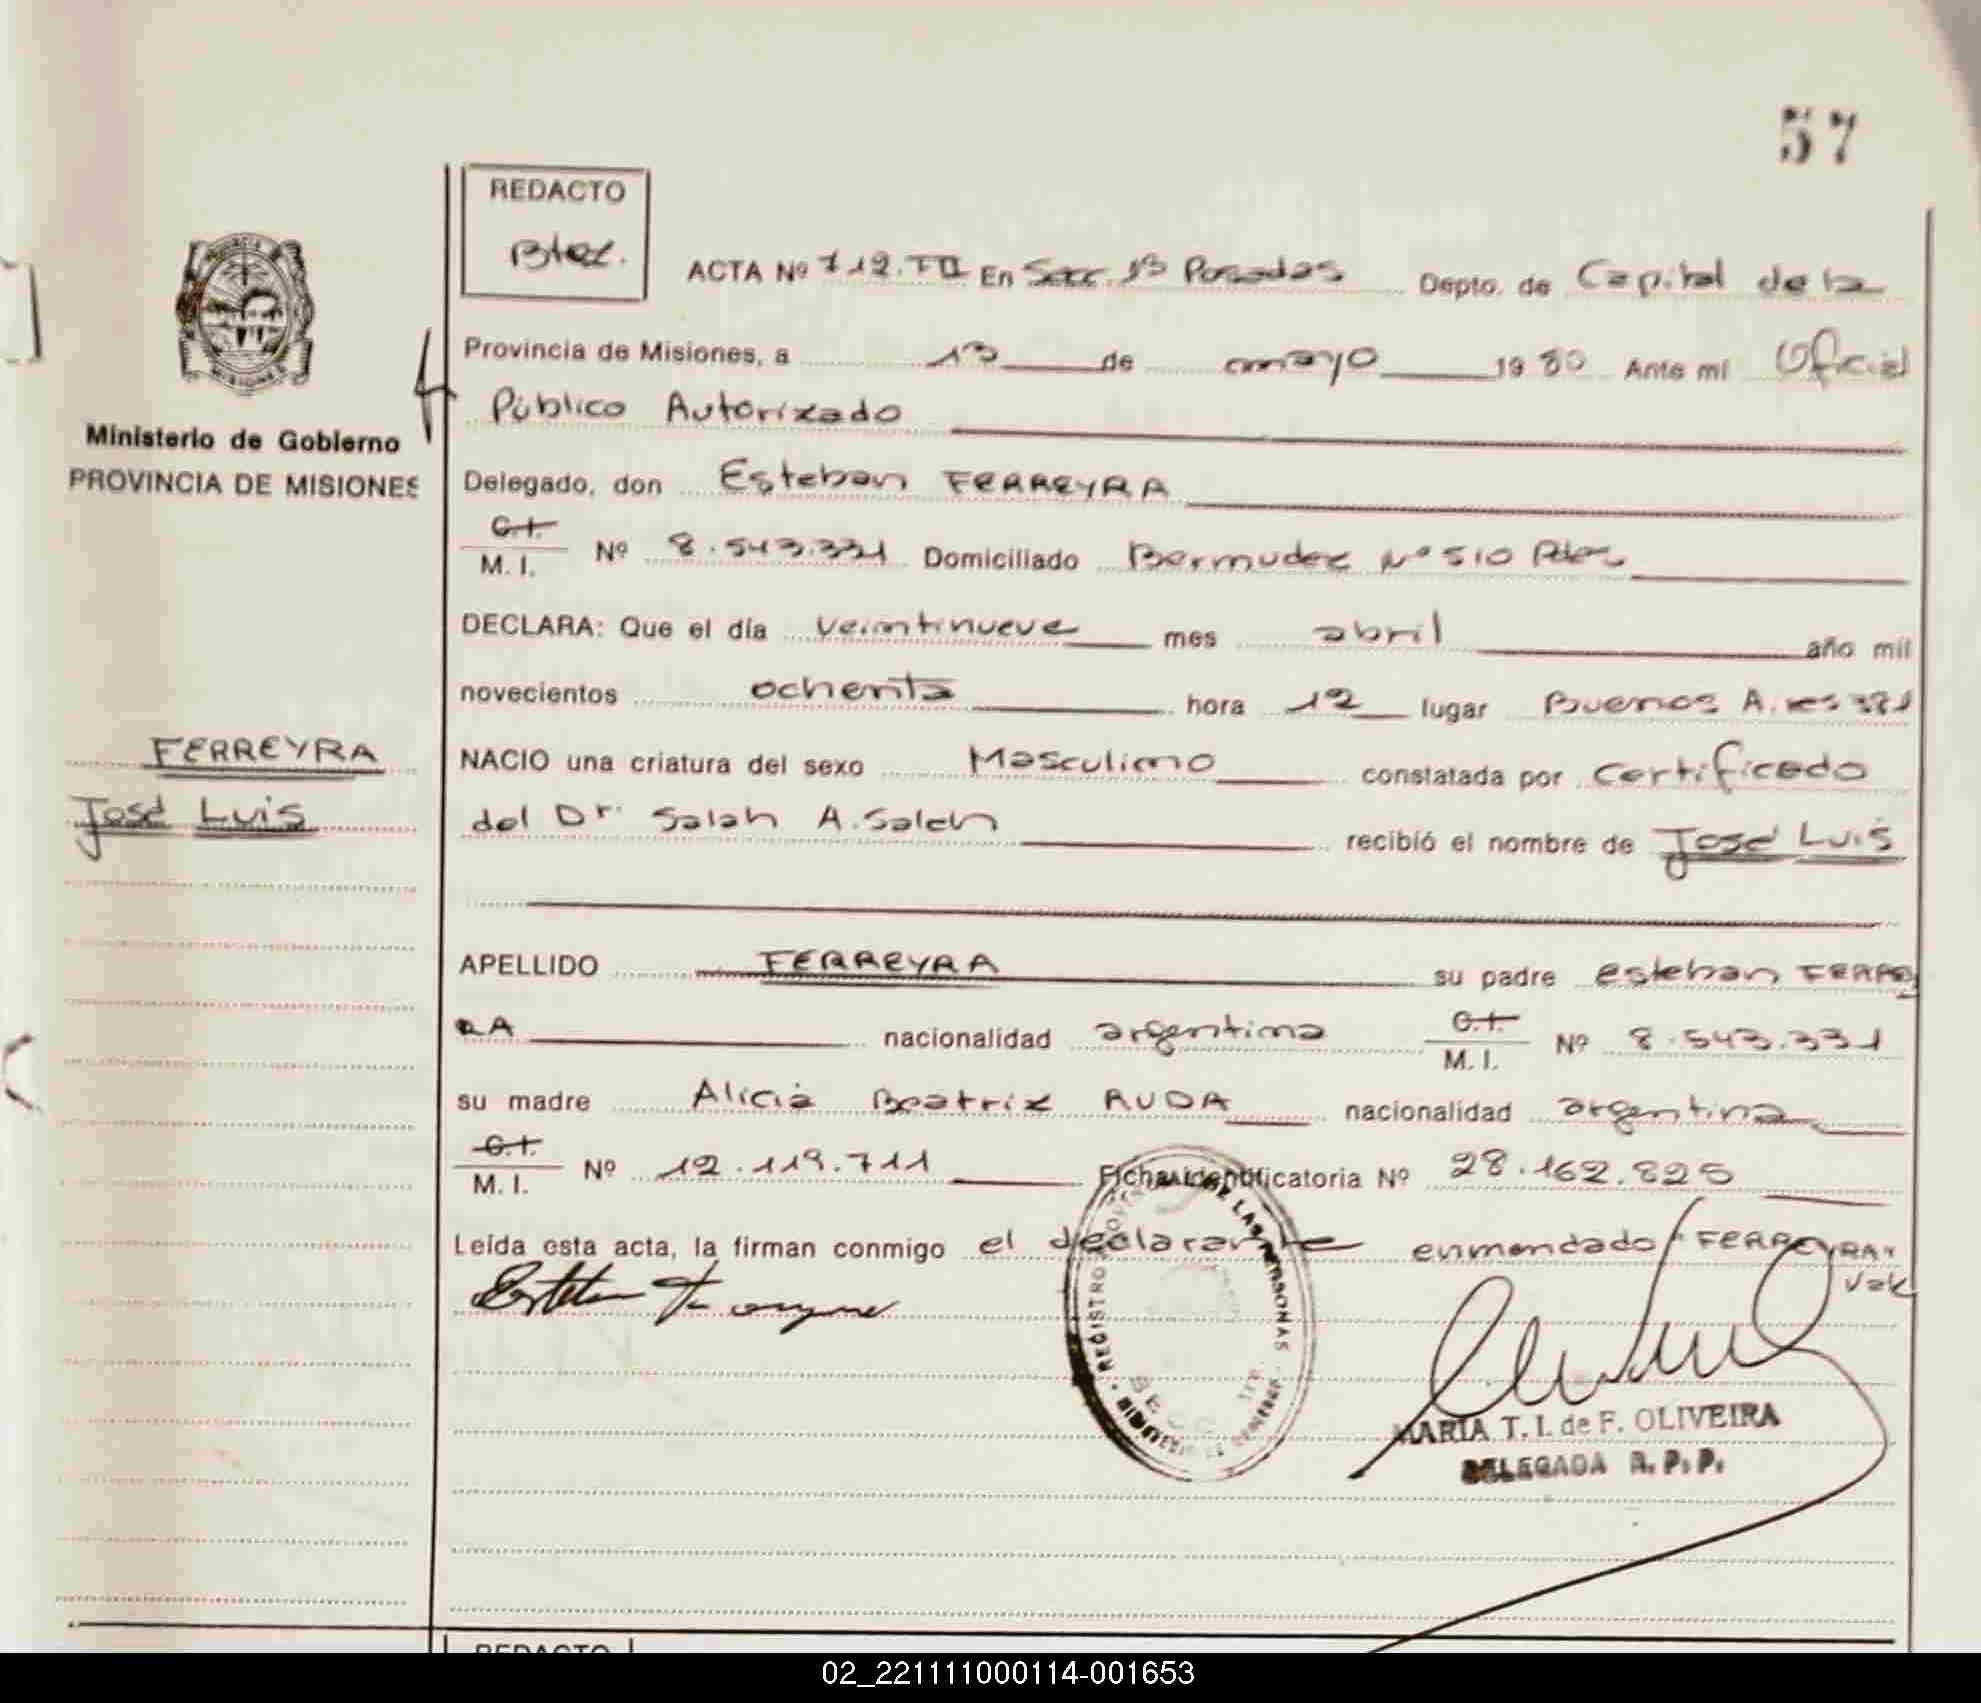 57
REDACTO
Btez.
ACTA Nº 712.TII En Secc. 1ª Posadas Depto. de Capital de la
Provincia de Misiones, a 13 de mayo 1980 Ante mi Oficial
Público Autorizado
Ministerio de Gobierno
PROVINCIA DE MISIONES
Delegado, don Esteban FERREYRA
C.I.
M. I. Nº 8.543.331 Domiciliado Bermudez Nº 510 Pdas
DECLARA: Que el día veintinueve mes abril año mil
novecientos ochenta hora 12 lugar Buenos Aires 381
FERREYRA
José Luis
NACIO una criatura del sexo Masculino constatada por Certificado
del Dr. Salah A. Saleh recibió el nombre de José Luis
APELLIDO FERREYRA su padre esteban FERREY
RA nacionalidad argentina C.I. M. I. Nº 8.543.331
su madre Alicia Beatriz RUDA nacionalidad argentina
C.I.
M. I. Nº 12.119.711 Ficha identificatoria Nº 28.162.825
Leída esta acta, la firman conmigo el declarante enmendado "FERREYRA"
Vale
REGISTRO DE LAS PERSONAS
MARIA T. I. de F. OLIVEIRA
DELEGADA R. P. P.
REDACTO
02_221111000114-001653